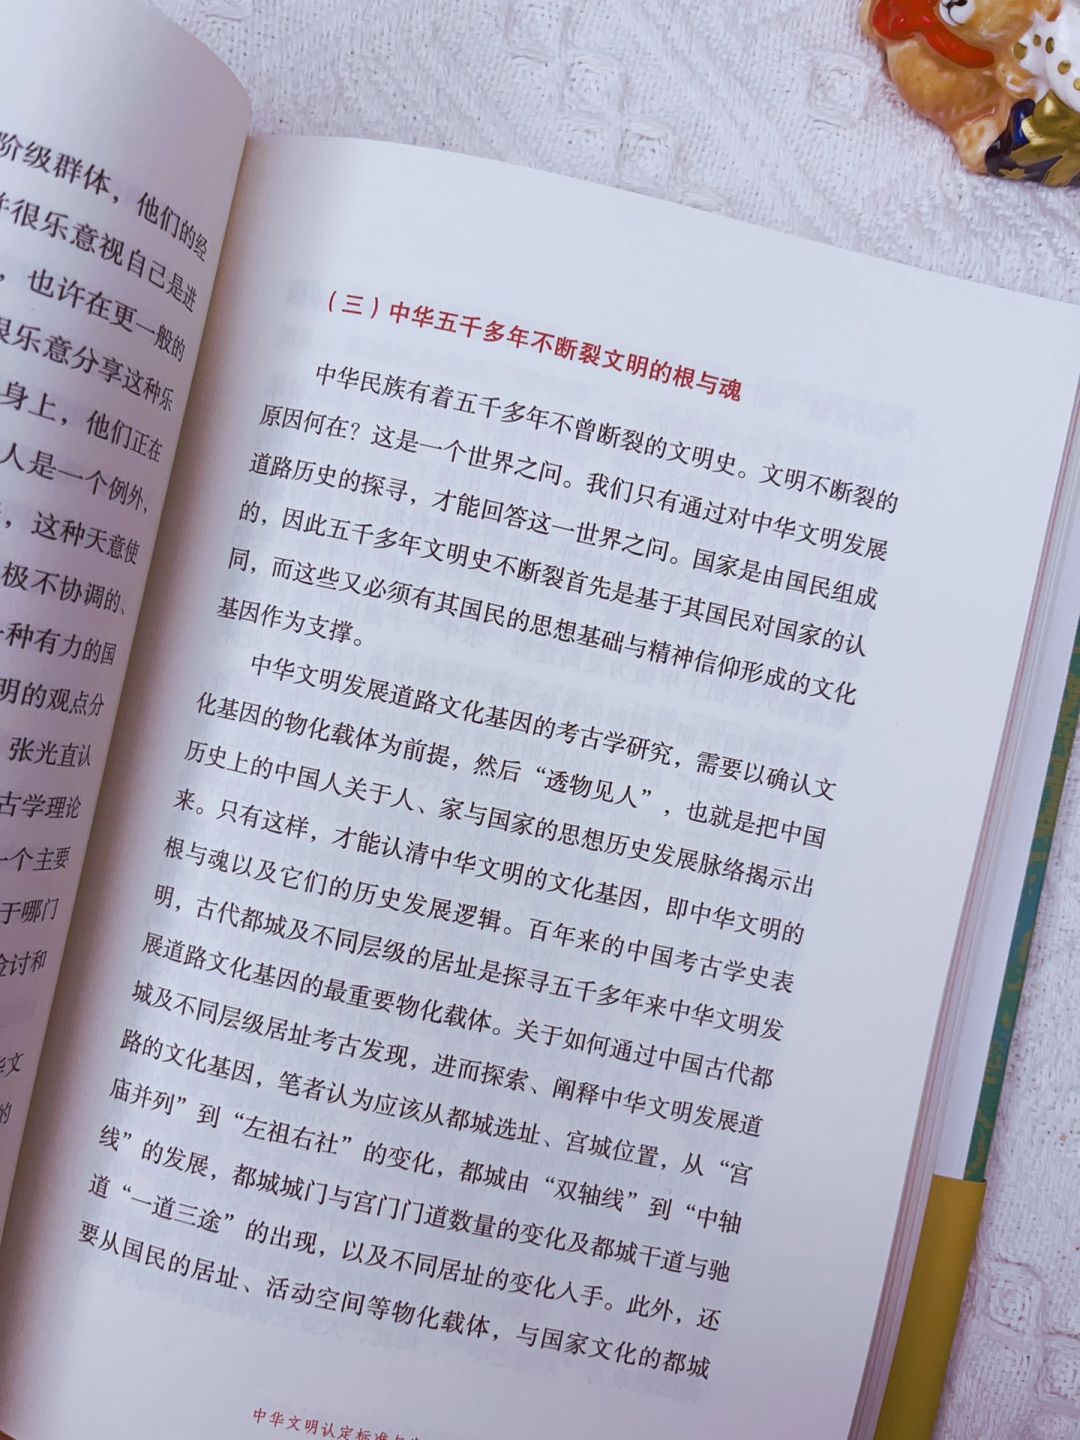 阶级群体，他们的经
很乐意视自己是进
，也许在更一般的
很乐意分享这种乐
身上，他们正在
人是一个例外，
，这种天意使
极不协调的、
种有力的国
明的观点分
张光直认
古学理论
一个主要
于哪门
检讨和
文
的
（三）中华五千多年不断裂文明的根与魂
中华民族有着五千多年不曾断裂的文明史。文明不断裂的
原因何在？这是一个世界之问。我们只有通过对中华文明发展
道路历史的探寻，才能回答这一世界之问。国家是由国民组成
的，因此五千多年文明史不断裂首先是基于其国民对国家的认
同，而这些又必须有其国民的思想基础与精神信仰形成的文化
基因作为支撑。
中华文明发展道路文化基因的考古学研究，需要以确认文
化基因的物化载体为前提，然后“透物见人”，也就是把中国
历史上的中国人关于人、家与国家的思想历史发展脉络揭示出
来。只有这样，才能认清中华文明的文化基因，即中华文明的
根与魂以及它们的历史发展逻辑。百年来的中国考古学史表
明，古代都城及不同层级的居址是探寻五千多年来中华文明发
展道路文化基因的最重要物化载体。关于如何通过中国古代都
城及不同层级居址考古发现，进而探索、阐释中华文明发展道
路的文化基因，笔者认为应该从都城选址、宫城位置，从“宫
庙并列”到“左祖右社”的变化，都城由“双轴线”到“中轴
线”的发展，都城城门与宫门门道数量的变化及都城干道与驰
道“一道三途”的出现，以及不同居址的变化入手。此外，还
要从国民的居址、活动空间等物化载体，与国家文化的都城
中华文明认定标准与